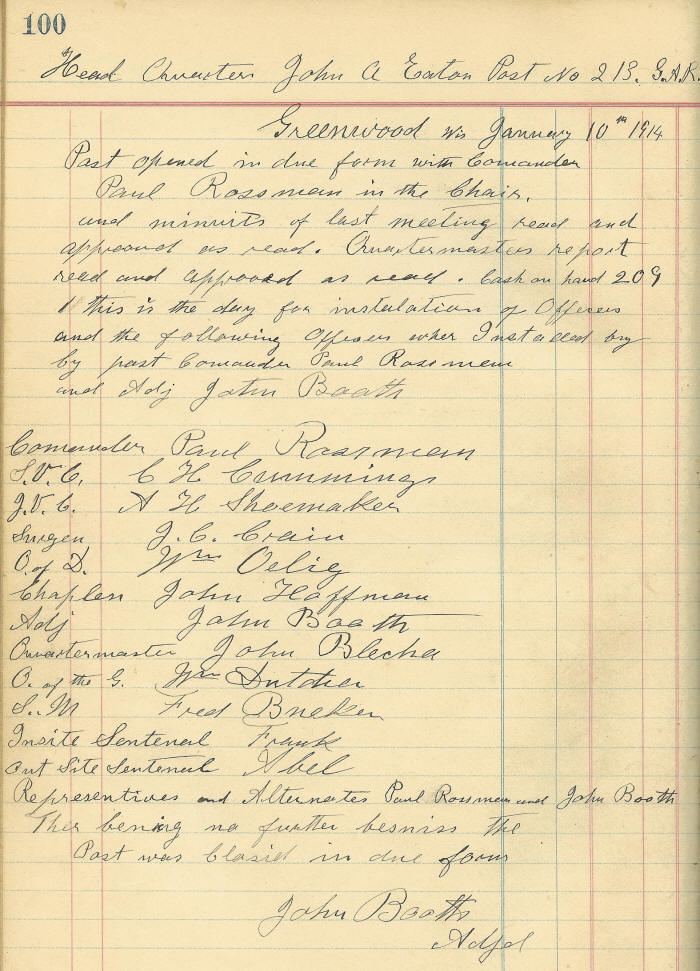 100
Head Quarters John A Eaton Post No 213. G.A.R.
Greenwood Wis January 10th 1914
Post opened in due form with Comander
Paul Rossman in the Chair.
and minuits of last meeting read and
approovd as read. Quartermasters report
read and approovd as read. Cash on hand 209
this is the day for instalation of Officers
and the following Officers wher Installed by
by past Comander Paul Rossman
and Adj John Booth
Comander Paul Rossman
S.V.C. C H Cummings
J.V.C. A H Shoemaker
Surgen J.C. Crain
O. of D. Wm Oelig
Chaplen John Hoffman
Adj John Booth
Quartermaster John Blecha
O. of the G. Wm Dutcher
S.M Fred Bueker
Insite Sentenal Frank
out Site Sentenal Abel
Representives and Alternates Paul Rossman and John Booth
Ther bening no further besniss the
Post was Closid in due form
John Booth
Adjd